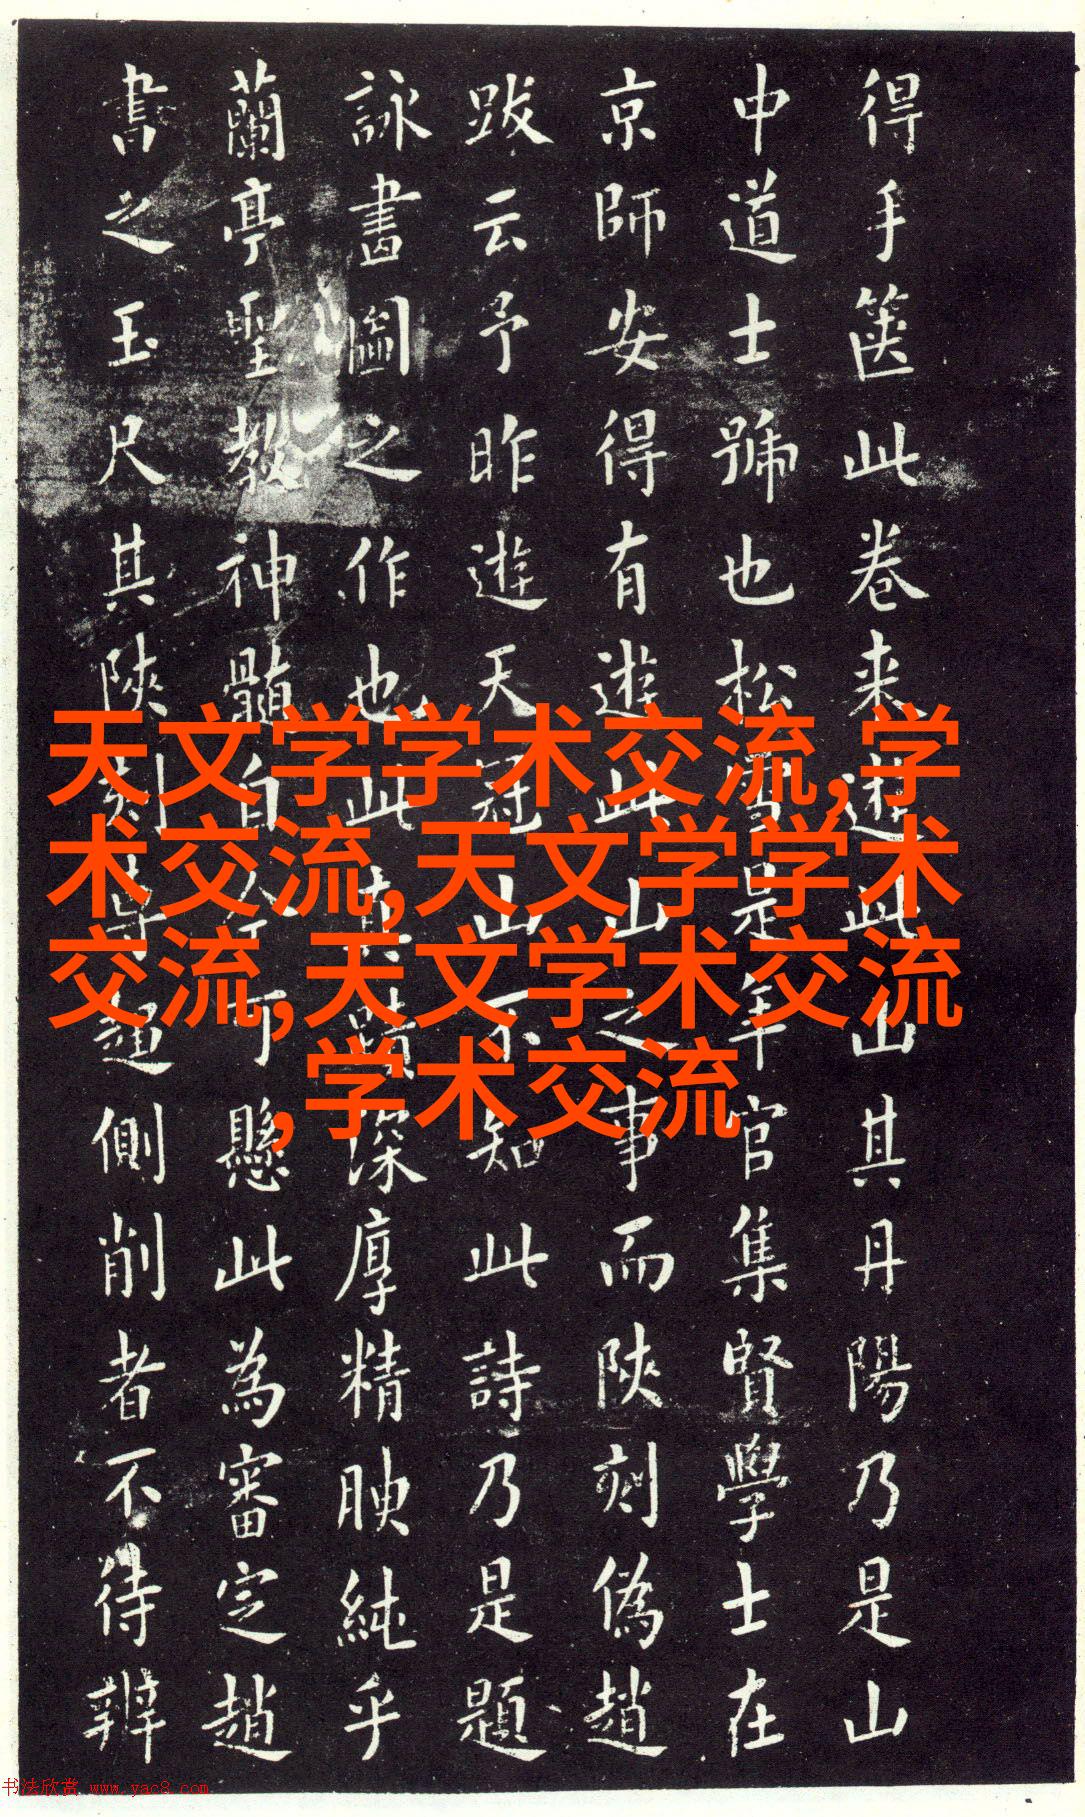 得手箧此卷来遊此山其丹陽乃是山
中道士號也松雪是年官集賢學士在
京師安得有遊此山之事而陝刻偽趙
跋云予昨遊天冠山不知此詩乃是題
詠畫圖之作也此其蹟深厚精腴純乎
蘭亭聖教神髓自可懸此為審定趙
書之玉尺其陝刻超側削者不待辨
天文学学术交流,学
术交流,天文学学术
交流,天文学术交流
,学术交流
书法欣赏 www.yac8.com